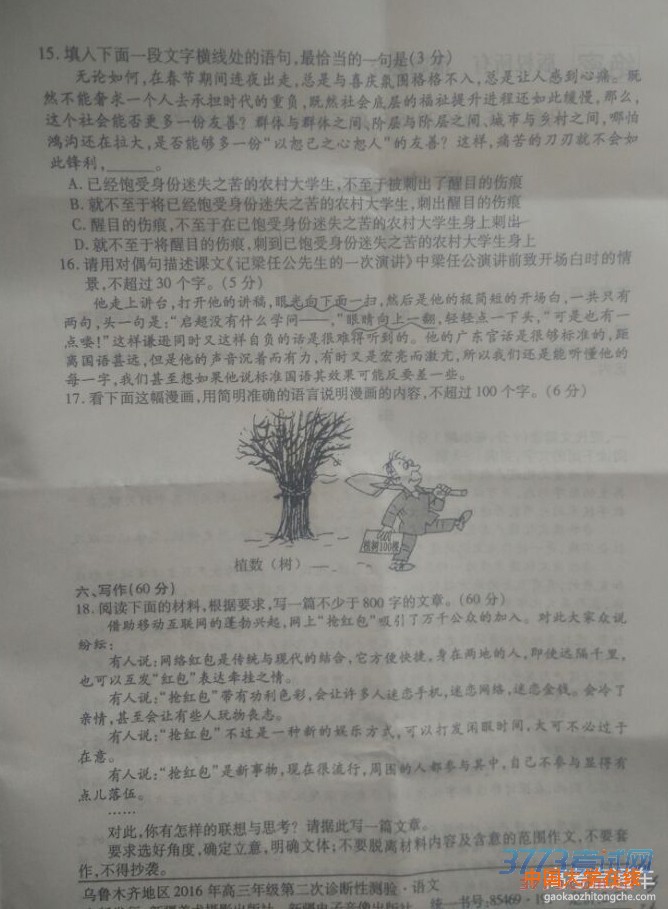 15. 填入下面一段文字横线处的语句,最恰当的一句是(3分)
无论如何,在春节期间连夜出走,总是与喜庆氛围格格不入,总是让人感到心痛。既
然不能奢求一个人去承担时代的重负,既然社会底层的福祉提升进程还如此缓慢,那么,
这个社会能否更多一份友善?群体与群体之间、阶层与阶层之间、城市与乡村之间,哪怕
鸿沟还在拉大,是否能够多一份“以恕己之心恕人”的友善?这样,痛苦的刀刃就不会如
此锋利,______。
A. 已经饱受身份迷失之苦的农村大学生,不至于被刺出了醒目的伤痕
B. 就不至于将已经饱受身份迷失之苦的农村大学生,刺出醒目的伤痕
C. 醒目的伤痕,不至于在已饱受身份迷失之苦的农村大学生身上刺出
D. 就不至于将醒目的伤痕,刺到已饱受身份迷失之苦的农村大学生身上
16. 请用对偶句描述课文《记梁任公先生的一次演讲》中梁任公演讲前致开场白时的情
景,不超过30个字。(5分)
他走上讲台,打开他的讲稿,眼光向下面一扫,然后是他的极简短的开场白,一共只有
两句,头一句是:“启超没有什么学问——,”眼睛向上一翻,轻轻点一下头,“可是也有一
点喽!”这样谦逊同时又这样自负的话是很难得听到的。他的广东官话是很够标准的,距
离国语甚远,但是他的声音沉着而有力,有时又是宏亮而激亢,所以我们还是能听懂他的
每一字,我们甚至想如果他说标准国语其效果可能反要差一些。
17. 看下面这幅漫画,用简明准确的语言说明漫画的内容,不超过100个字。(6分)
植树100棵
植数(树)——
六、写作(60分)
18. 阅读下面的材料,根据要求,写一篇不少于800字的文章。(60分)
借助移动互联网的蓬勃兴起,网上“抢红包”吸引了万千公众的加入。对此大家众说
纷纭:
有人说:网络红包是传统与现代的结合,它方便快捷,身在两地的人,即使远隔千里,
也可以互发“红包”表达牵挂之情。
有人说:“抢红包”带有功利色彩,会让许多人迷恋手机,迷恋网络,迷恋金钱。会冷了
亲情,甚至会让有些人玩物丧志。
有人说:“抢红包”不过是一种新的娱乐方式,可以打发闲暇时间,大可不必过于
在意。
有人说:“抢红包”是新事物,现在很流行,周围的人都参与其中,自己不参与显得有
点儿落伍。
……
对此,你有怎样的联想与思考?请据此写一篇文章。
要求选好角度,确定立意,明确文体;不要脱离材料内容及含意的范围作文,不要套
作,不得抄袭。
3773考试网
乌鲁木齐地区2016年高三年级第二次诊断性测验·语文
统一书号:85469·
gaokaozhitongche.com